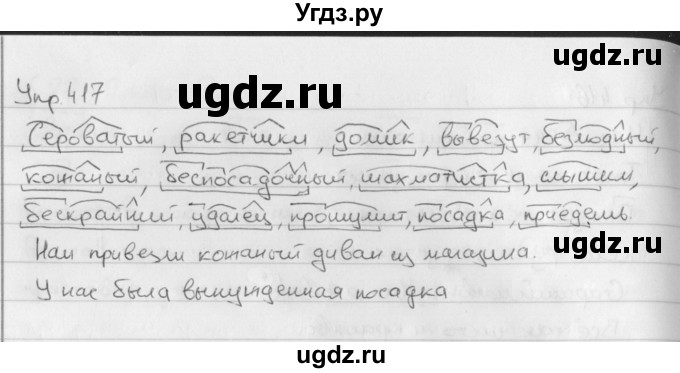 Угдз.ру
Упр. 417
ugdz.ru ugdz.ru
Сероватый, ракетчики, домик, вывезут, безлюдный,
кожаный, беспосадочный, шахматистка, слышим,
бескрайний, удалец, прошумит, посадка, приедешь.
ugdz.ru
Нам привезли кожаный диван из магазина.
У нас была вынужденная посадка
ugdz.ru
ugdz.ru